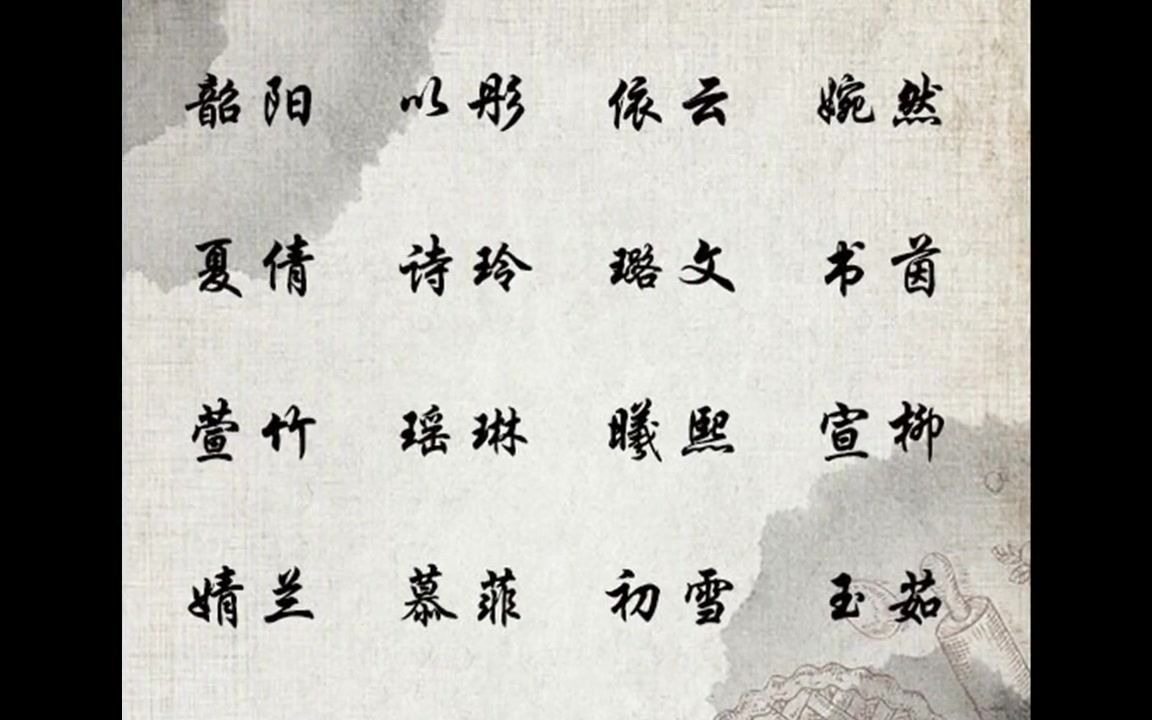 韶阳 以彤 依云 婉然
夏倩 诗玲 璐文 书茵
萱竹 瑶琳 曦熙 宣柳
婧兰 慕菲 初雪 玉茹